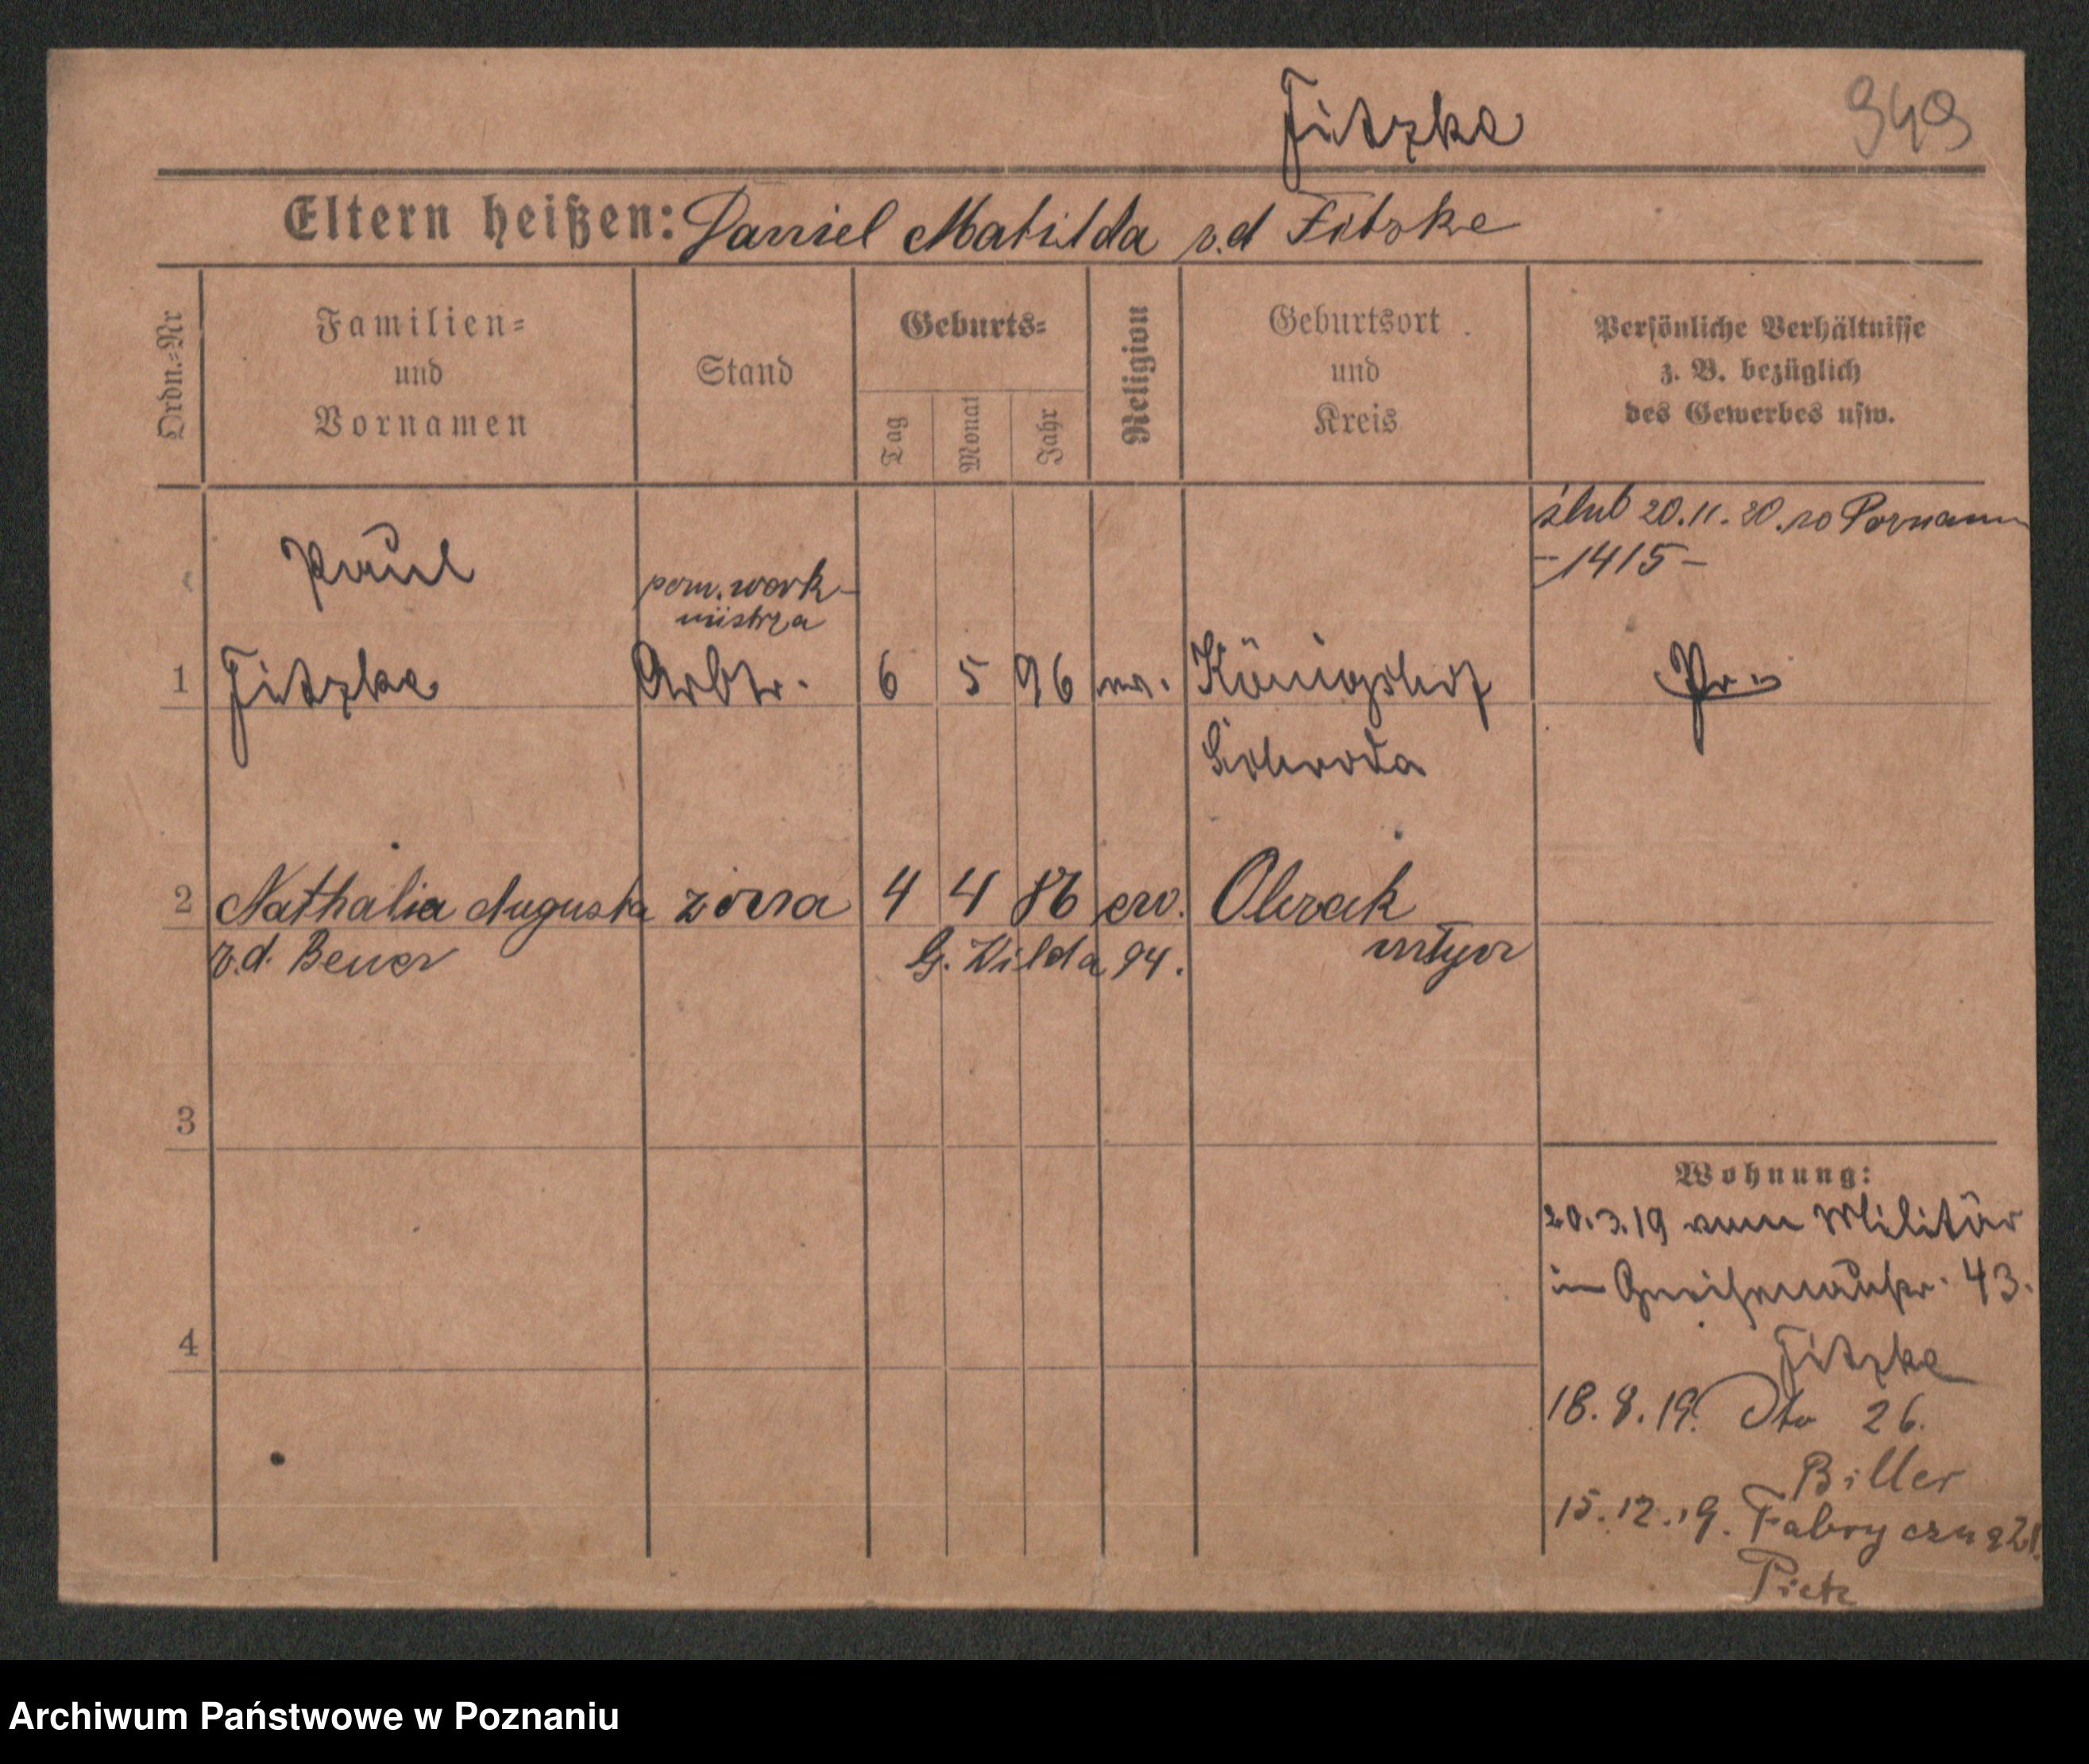 Fitzke
949
Eltern heißen: Daniel Matilda z.d Fitzke
Ordn.=Nr
Familien=
und
Vornamen
Stand
Geburts=
Tag
Monat
Jahr
Religion
Geburtsort
und
Kreis
Persönliche Verhältnisse
z. B. bezüglich
des Gewerbes usw.
ślub 20.11.20. w Poznaniu
-1415-
Paul
pom. werk-
mistrza
1 Fitzke Arbtr. 6 5 96 ev. Königshof Pr.
Schroda
2 Nathalia Augusta żona 4 4 86 ew. Obrzck
z.d. Beyer G. Wilda 94.
3
4
Wohnung:
20.3.19 vom Militär
in Gneisenaustr. 43.
Fitzke
18.8.19. 26.
Biller
15.12.19. Fabryczna 21.
Pietz
Archiwum Państwowe w Poznaniu